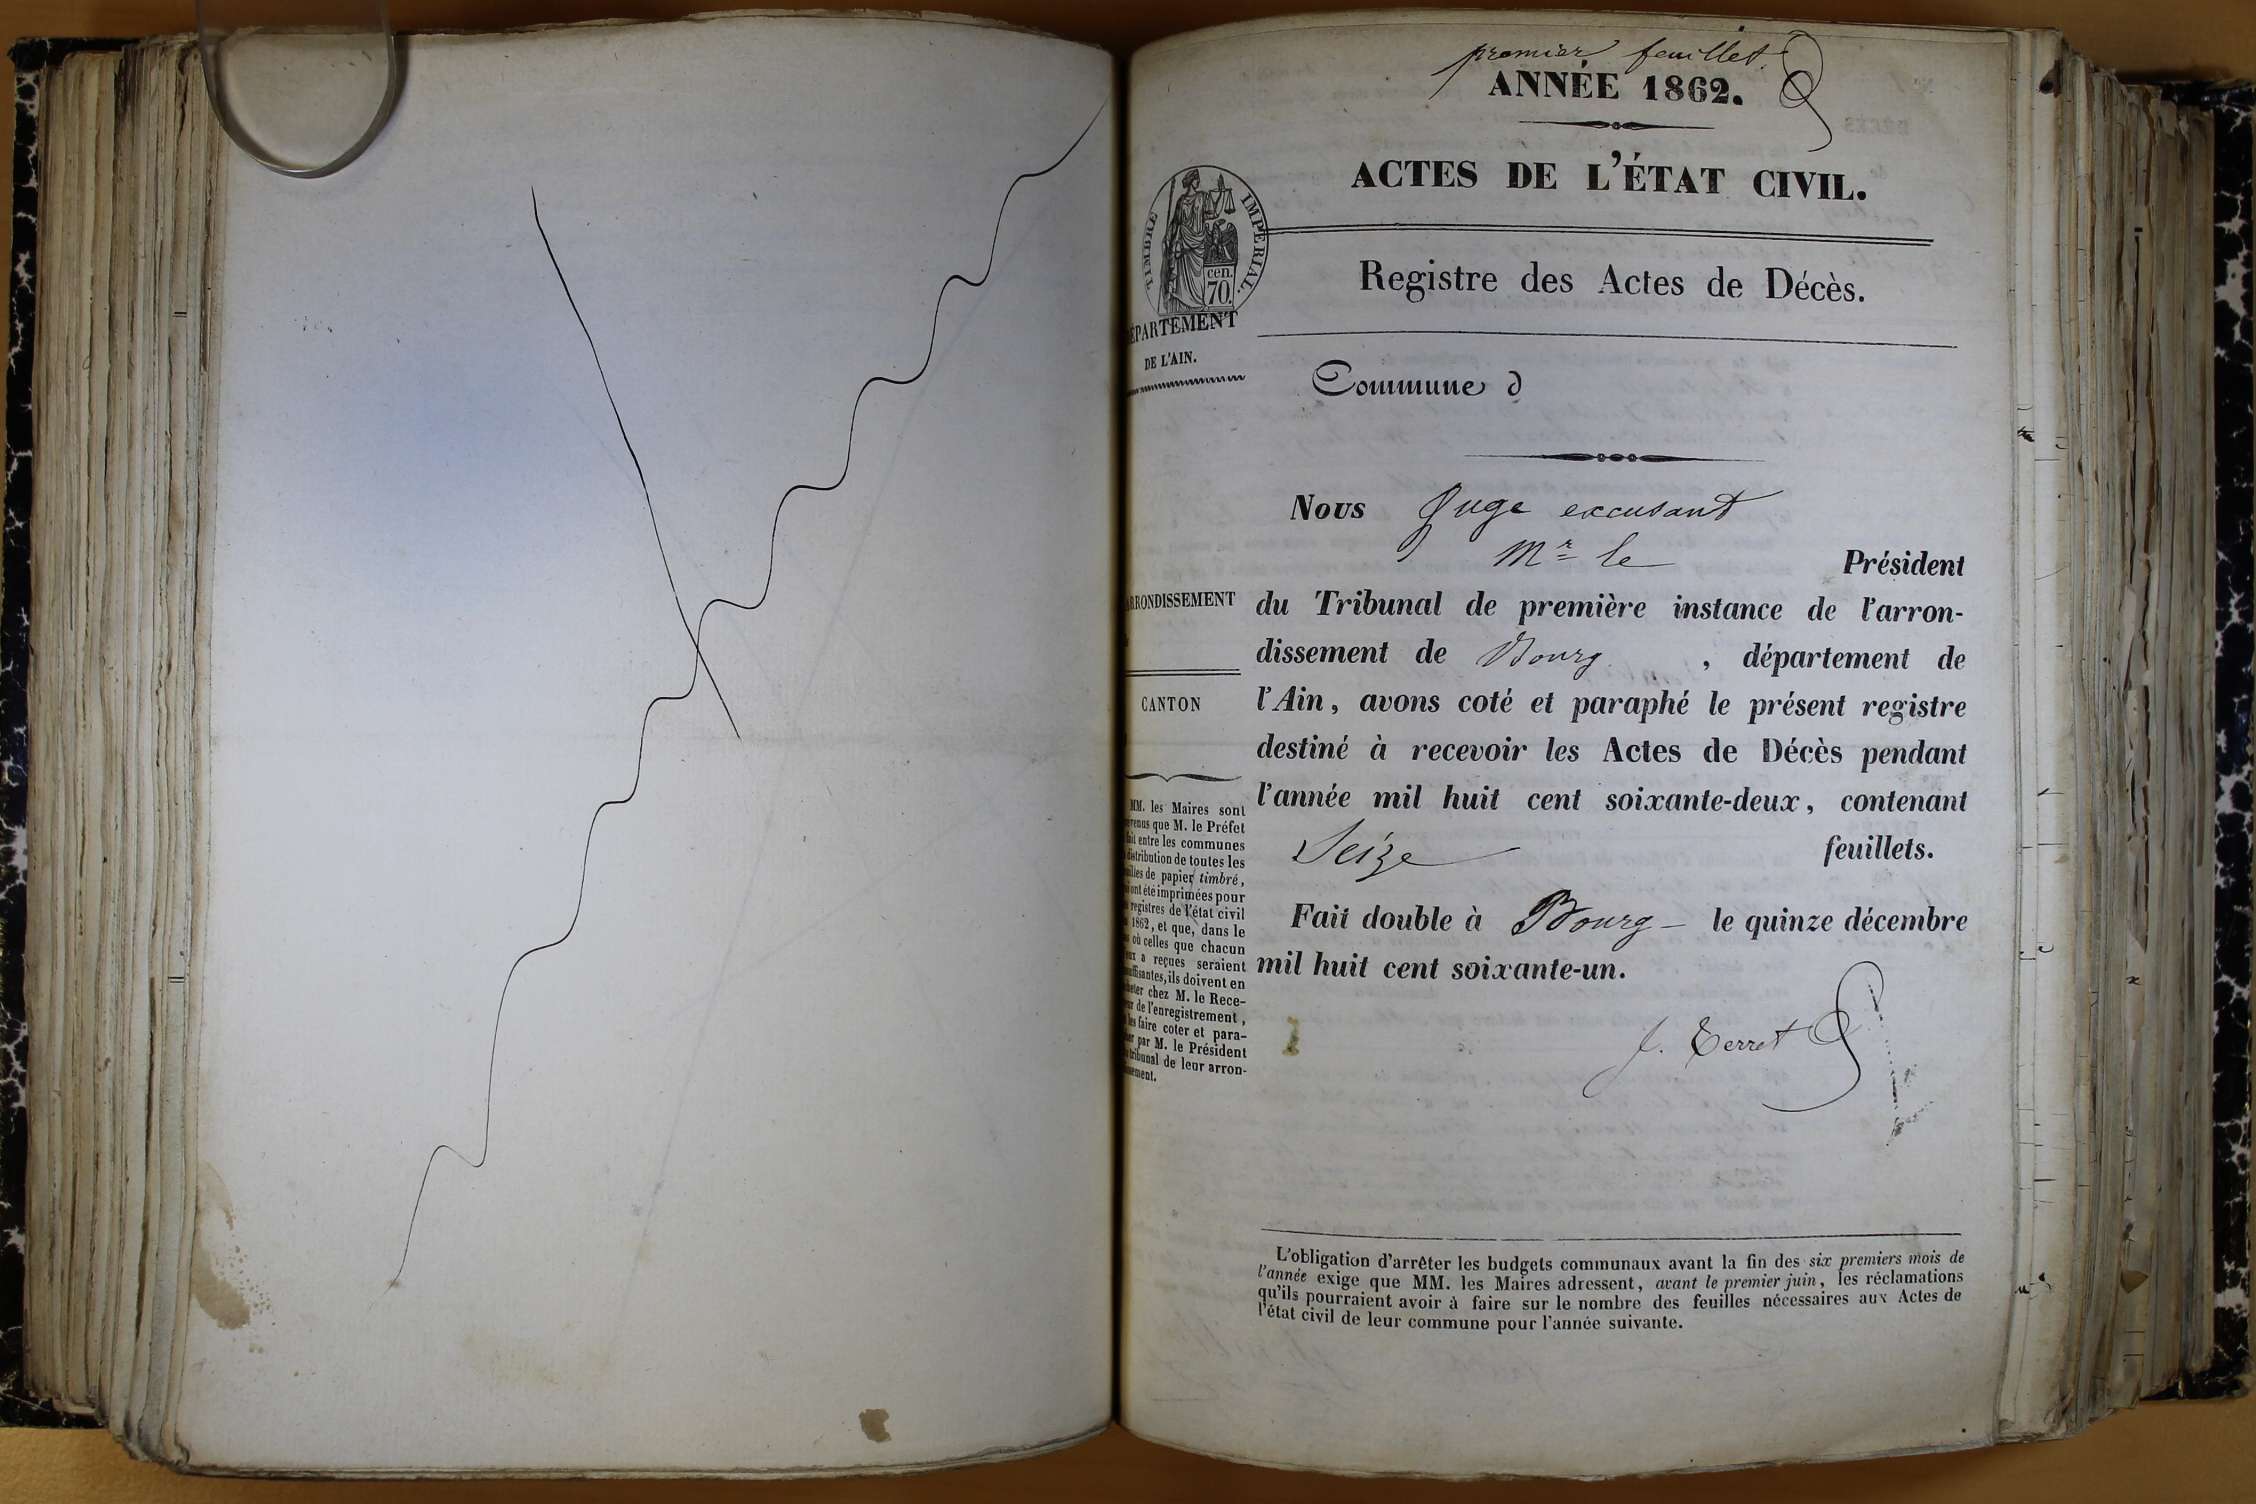 premier feuillet.
ANNÉE 1862.
ACTES DE L'ÉTAT CIVIL.
TIMBRE IMPERIAL.
cen.
70.
Registre des Actes de Décès.
ÉPARTEMENT
DE L'AIN.
Commune d
Nous Juge excusant
Mr le Président
du Tribunal de première instance de l'arron-
dissement de Bourg , département de
l'Ain, avons coté et paraphé le présent registre
destiné à recevoir les Actes de Décès pendant
l'année mil huit cent soixante-deux, contenant
Seize feuillets.
Fait double à Bourg – le quinze décembre
mil huit cent soixante-un.
J. Terret
RRONDISSEMENT
CANTON
MM. les Maires sont
venus que M. le Préfet
fait entre les communes
distribution de toutes les
uilles de papier timbré,
i ont été imprimées pour
registres de l'état civil
1862, et que, dans le
où celles que chacun
eux a reçues seraient
suffisantes, ils doivent en
heter chez M. le Rece-
eur de l'enregistrement,
les faire coter et para-
her par M. le Président
tribunal de leur arron-
sement.
L'obligation d'arrêter les budgets communaux avant la fin des six premiers mois de
l'année exige que MM. les Maires adressent, avant le premier juin, les réclamations
qu'ils pourraient avoir à faire sur le nombre des feuilles nécessaires aux Actes de
l'état civil de leur commune pour l'année suivante.